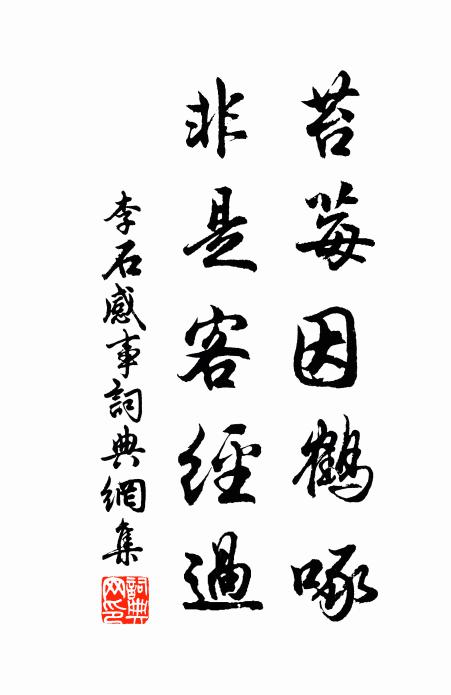 苔莓因鶴啄
非是客經過
李石感事詞典網集
詞典網印